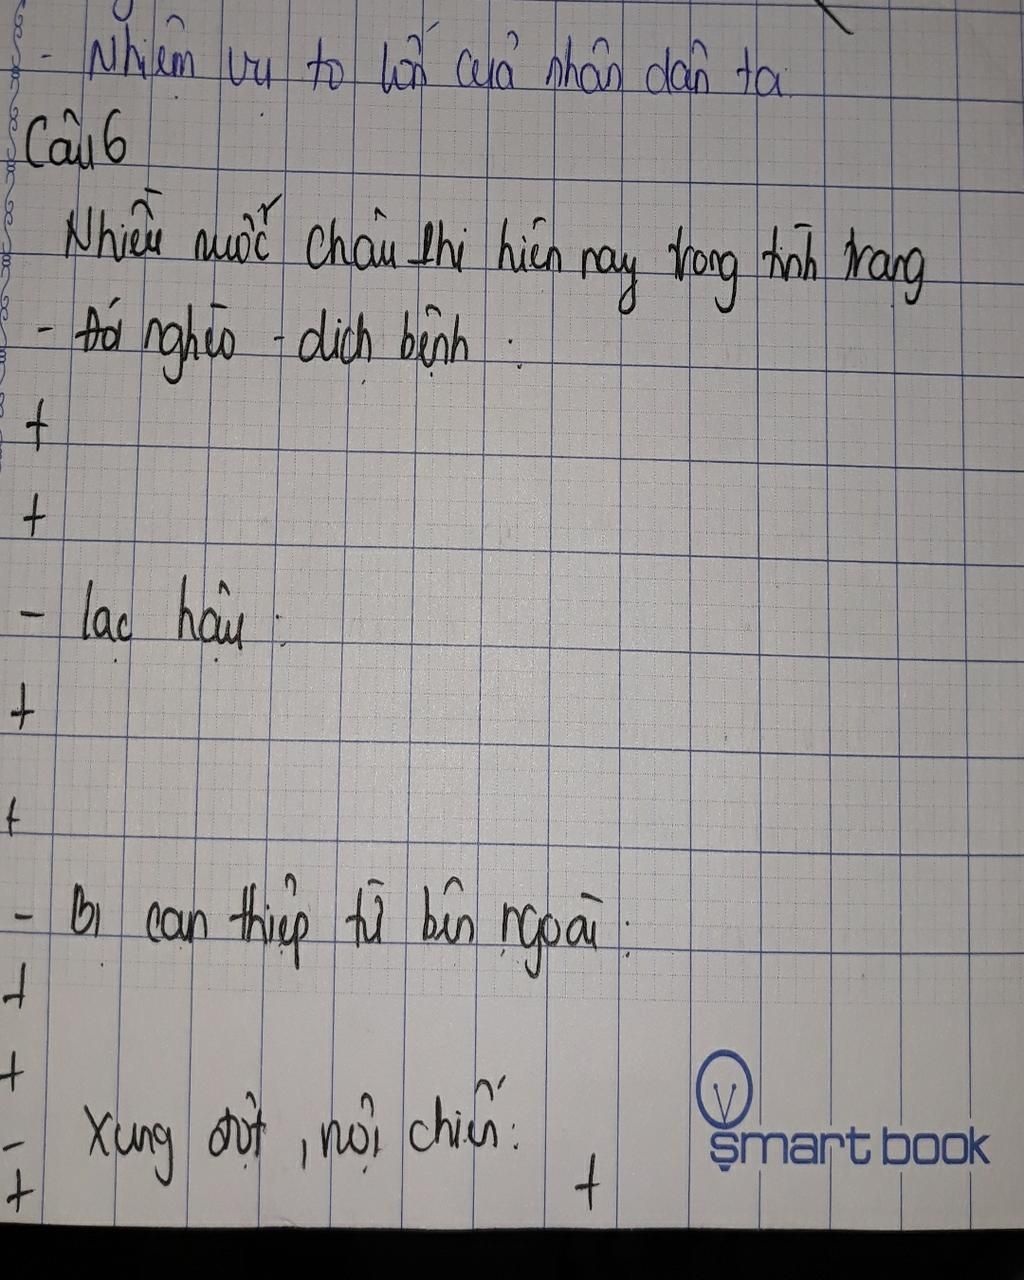 - Nhiệm vụ to lớn của nhân dân ta
Câu 6
Nhiều nước châu Phi hiện nay trong tình trạng
- Đói nghèo - dịch bệnh :
+
+
- lạc hậu :
+
+
- Bị can thiệp từ bên ngoài :
+
+
- Xung đột , nội chiến :
+ +
smart book